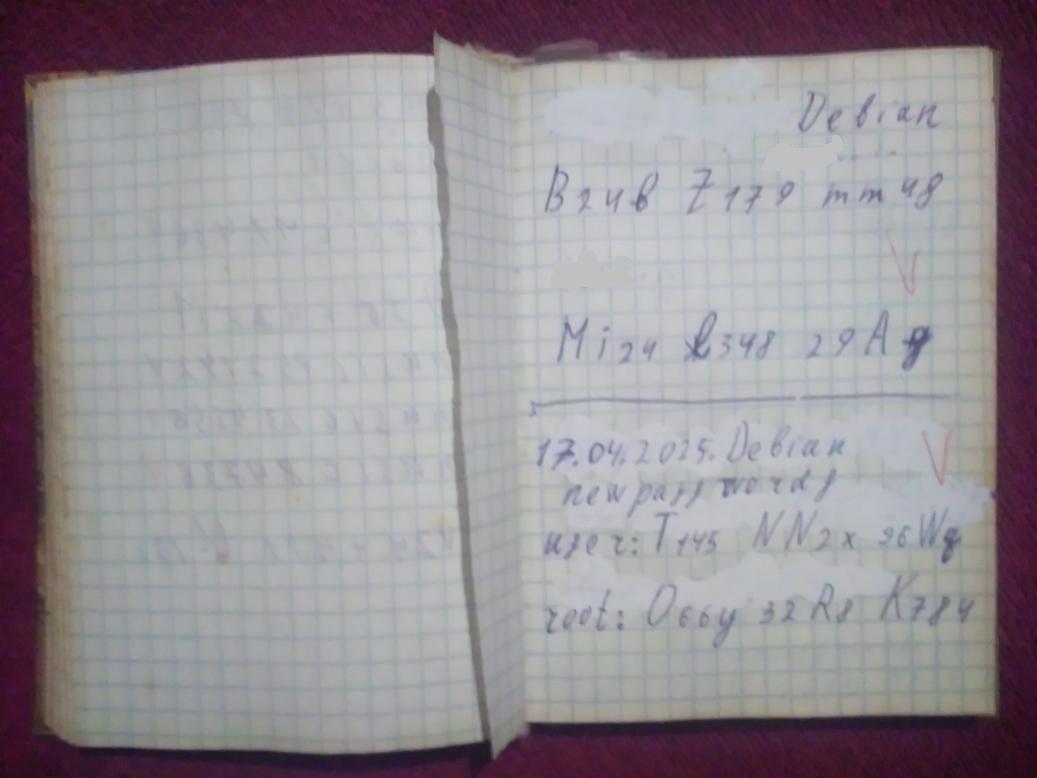 Debian
B24b Z179 mm48
Mi24 l348 29Ag
17.04.2025. Debian
new passwords
user: T145 NN2x 96Wg
root: O66y 32R8 K784